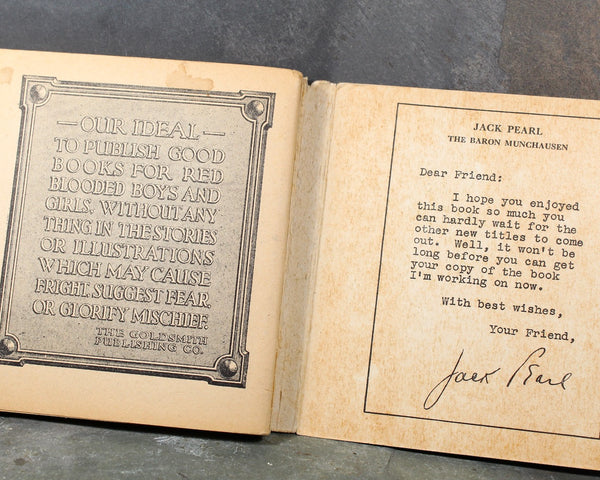 — OUR IDEAL —
TO PUBLISH GOOD
BOOKS FOR RED
BLOODED BOYS AND
GIRLS, WITHOUT ANY
THING IN THE STORIES
OR ILLUSTRATIONS
WHICH MAY CAUSE
FRIGHT, SUGGEST FEAR,
OR GLORIFY MISCHIEF.
THE GOLDSMITH
PUBLISHING CO.
JACK PEARL
THE BARON MUNCHAUSEN
Dear Friend:
I hope you enjoyed
this book so much you
can hardly wait for the
other new titles to come
out. Well, it won't be
long before you can get
your copy of the book
I'm working on now.
With best wishes,
Your Friend,
Jack Pearl